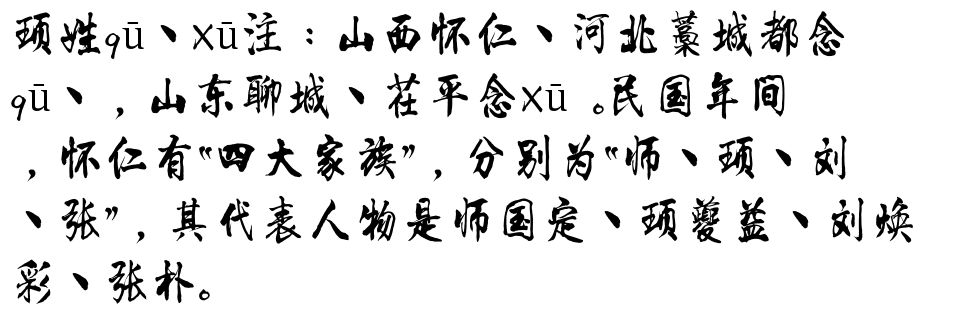 顼姓qū、xū注：山西怀仁、河北藁城都念
qū、，山东聊城、茌平念xū 。民国年间
，怀仁有“四大家族”，分别为“师、顼、刘
、张”，其代表人物是师国定、顼夔益、刘焕
彩、张朴。